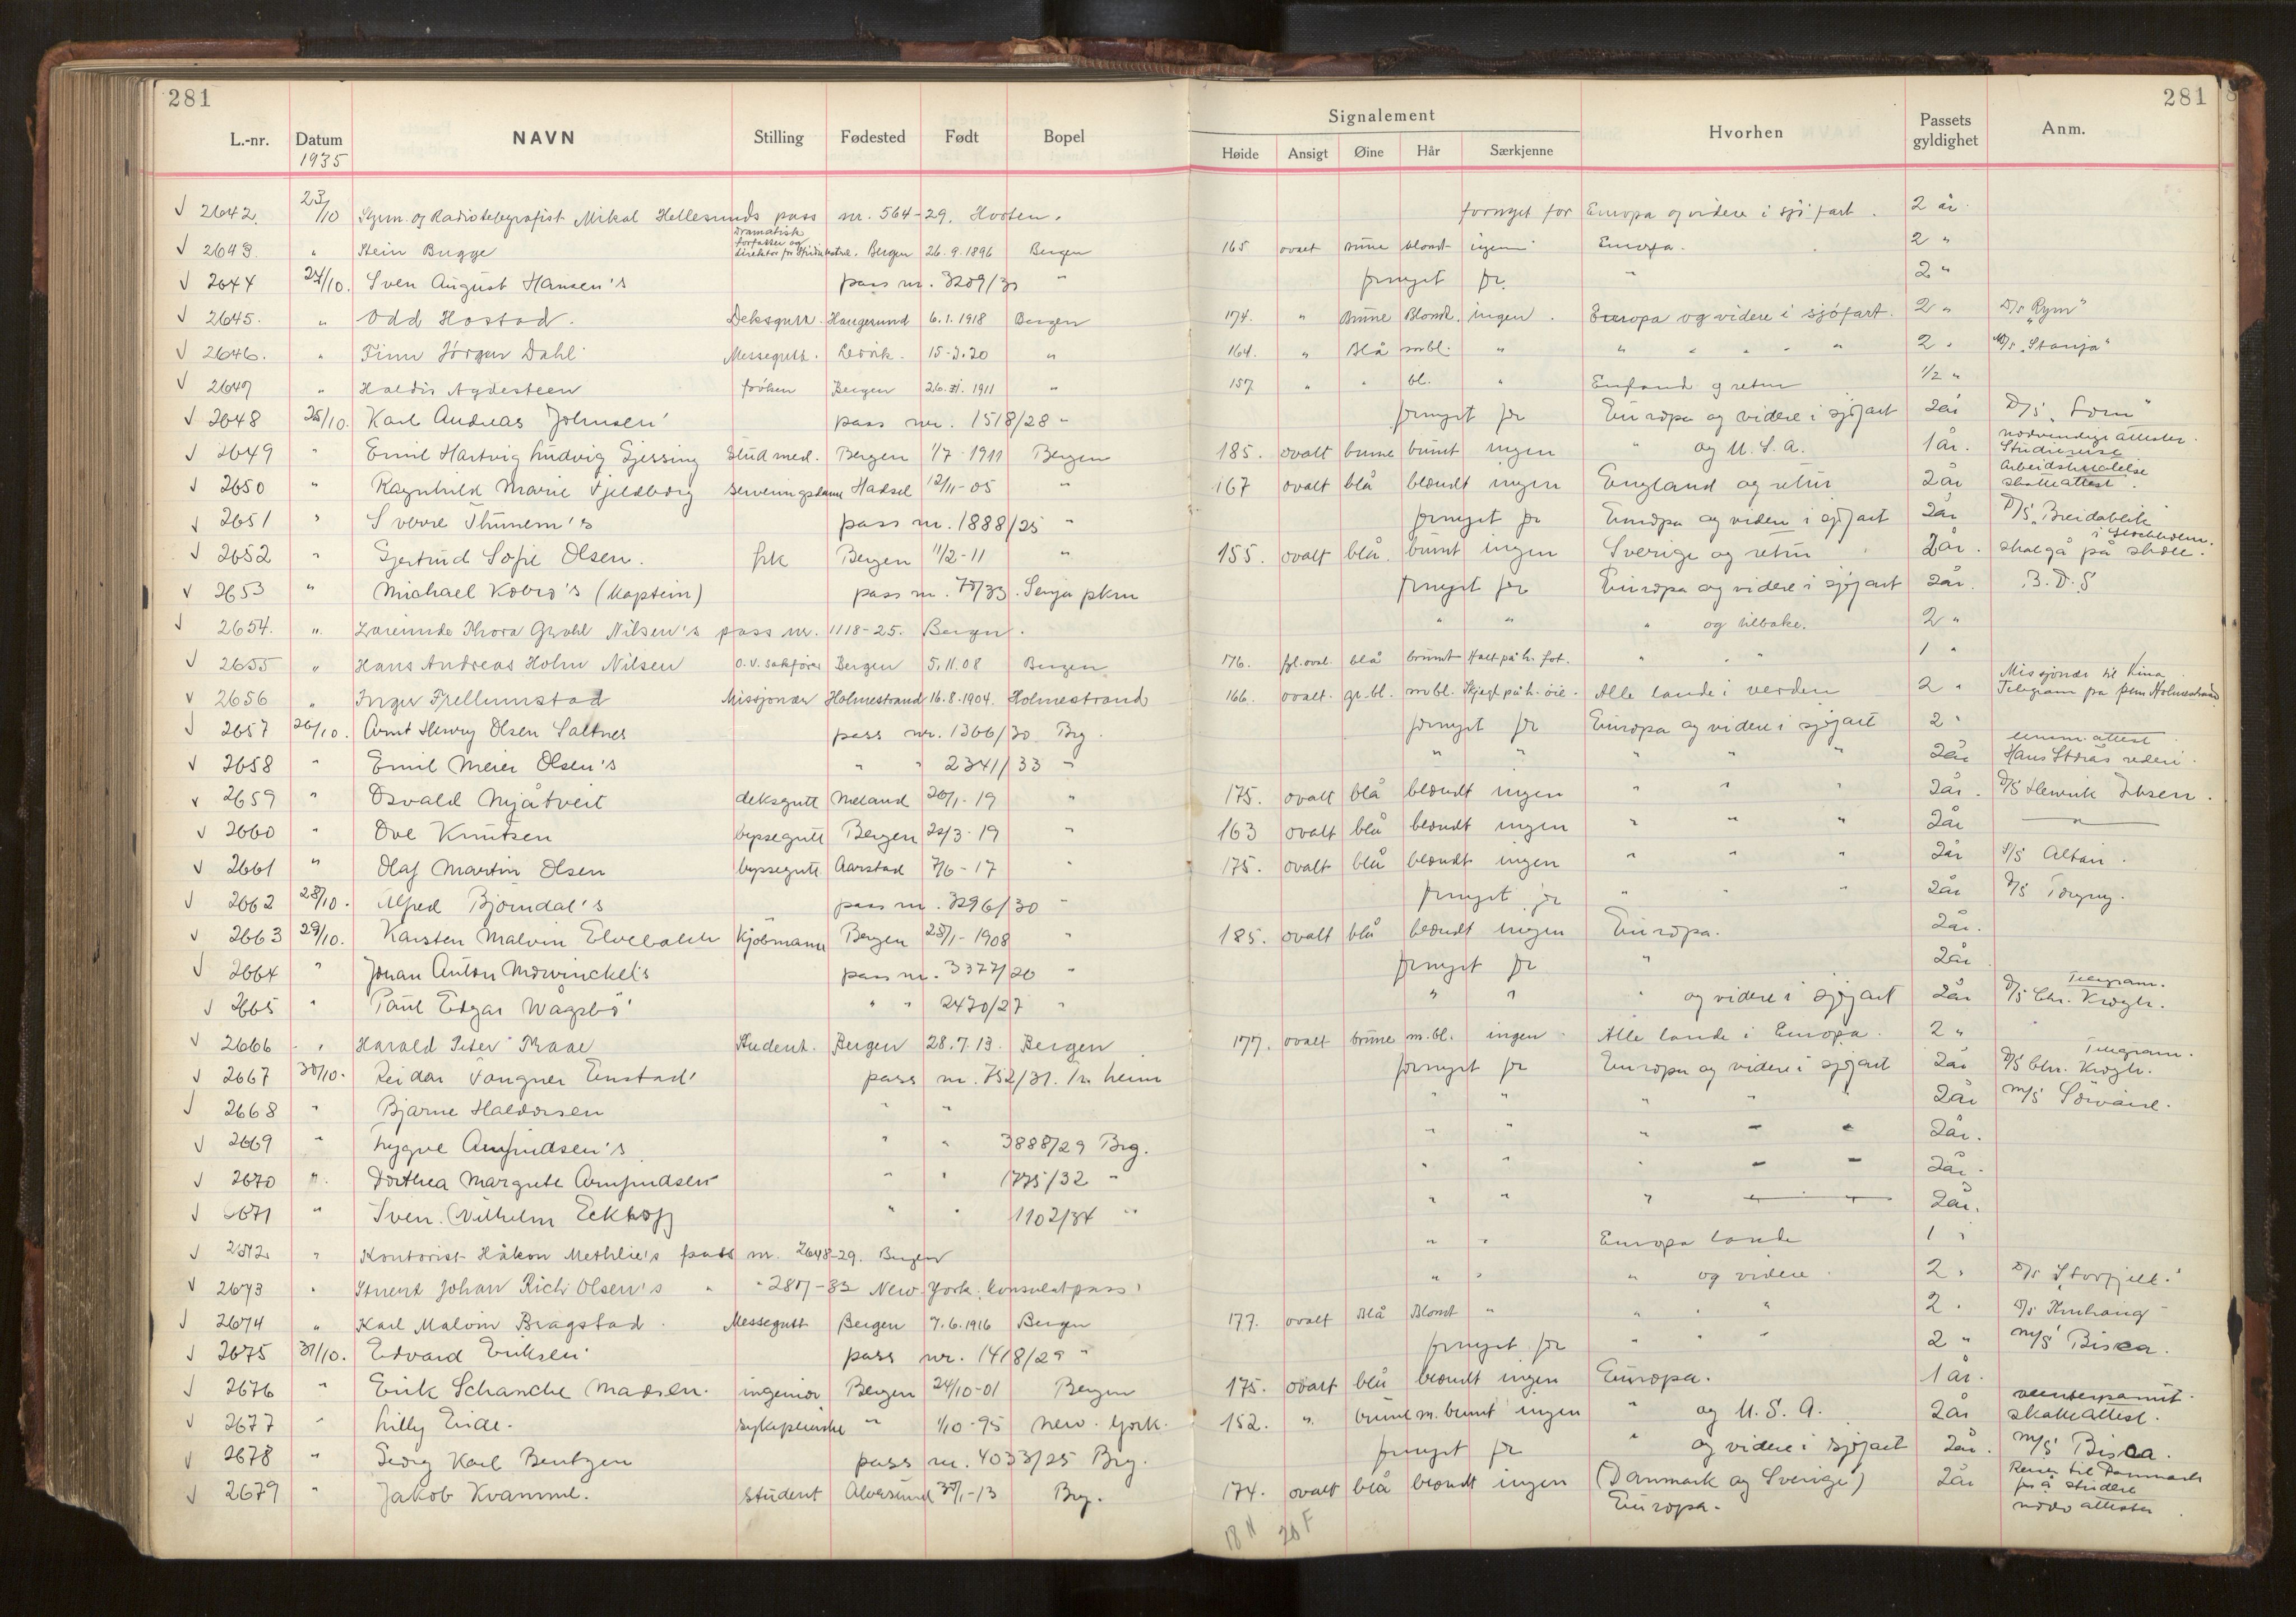 281 281
L.-nr. Datum 1935 NAVN Stilling Fødested Født Bopel Signalement Høide Ansigt Øine Hår Særkjenne Hvorhen Passets gyldighet Anm.
√ 2642. 23/10 Styrm. og Radiotelegrafist Mikal Hellesunds pass nr. 564-29. Horten. fornyet for Europa og videre i sjöfart. 2 år.
√ 2643. " Stein Bugge Dramatisk forfatter og direktör for Bergen 26.9.1896 Bergen 165 ovalt Brune blondt ingen Europa. 2 "
√ 2644 24/10. Sven August Hansen's pass nr. 3209/30 " fornyet for " 2 "
√ 2645. " Odd Hostad. Deksgutt. Haugesund 6.1.1918 Bergen 174. " Brune Blondt. ingen. Europa og videre i sjöfart. 2 " D/s "Rym"
√ 2646. " Finn Jörgen Dahl Messegutt. 15-3.20 " 164. " Blå m.bl. " " " " " " 2 " M/s "Stanja"
√ 2647 " Haldis Agdesteen fröken Bergen 26.XI.1911 " 157 " " bl. " England og retur 1/2 "
√ 2648 25/10. Karl Andreas Johnsen' pass nr. 1518/28 " fornyet for Europa og videre i sjöfart 2 år D/S "Lom"
√ 2649 " Emil Hartvig Ludvig Gjessing Stud med. Bergen 1/7-1911 Bergen 185. ovalt brune brunt ingen " og U.S.A. 1 år. nödvendige attester. Studiereise
√ 2650 " Ragnhild Marie Fjeldborg Serveringsdame Hadsel 12/11-05 " 167 ovalt blå blondt ingen England og retur 2 år Arbeidstillatelse skatteattest.
√ 2651 " Sverre Thunem's pass nr. 1888/25 " fornyet for Europa og videre i sjöfart 2 år D/S "Breidablik"
√ 2652 " Gjertrud Sofie Olsen. frk Bergen 11/2-11 " 155. ovalt blå. brunt ingen Sverige og retur 2 år. skal gå på skole i Stockholm.
√ 2653 " Michael Kobro's (Kaptein) pass nr. 78/33. Senja pkm fornyet for Europa og videre i sjöfart 2 år. B.D.S
√ 2654. " Thora Nilsen's pass nr. 1118-25. Bergen. " " " og tilbake. 2 "
√ 2655 " Hans Andreas Holm Nilsen o.r. sakförer Bergen 5.11.08 Bergen 176. fyl.oval. blå brunt Halt på h. fot. " " " 1 "
√ 2656 " Inger Frellumstad Missjonær Holmestrand 16.8.1904. Holmestrand 166. ovalt. gr.bl. m.bl. på h. öie. Alle lande i verden 2 " Missjonær til Kina. Telegram fra pkm Holmestrand
√ 2657 26/10. Arnt Henry Olsen Saltnes pass nr. 1366/30 Brg. fornyet for Europa og videre i sjöfart 2 "
√ 2658 " Emil Meier Olsen's " " 2341/33 " " " " " " 2 år attest Hans Storås rederi.
√ 2659 " Osvald Mjåtveit deksgutt Meland 20/1-19 " 175. ovalt blå blondt ingen " " " 2 år. D/S Henrik Ibsen.
√ 2660 " Ove Knutsen byssegutt Bergen 22/3-19 " 163 ovalt blå blondt ingen " " " 2 år "
√ 2661 " Olaf Martin Olsen byssegutt Aarstad 7/6-17 " 175. ovalt blå blondt ingen " " " 2 år S/S Altair.
√ 2662 28/10. Alfred Bjorndal's pass nr. 3296/30 " fornyet for " " " 2 år D/S Torgny.
√ 2663 29/10. Karsten Malvin Elvebakk Kjöbmann Bergen 28/1-1908 " 185. ovalt blå blondt ingen Europa. 2 år.
√ 2664 " Johan Anton Mowinckel's pass nr. 3377/20 " fornyet for " 2 år
√ 2665 " Paul Edgar Wågsbö' " " 2470/27 " " " " og videre i sjöfart 2 år Telegram. D/S Chr. Krogh.
√ 2666 " Harald Peter Traae Student. Bergen 28.7.13. Bergen 177. ovalt brune m.bl. ingen Alle lande i Europa. 2 "
√ 2667 30/10. Reidar Enstad' pass nr. 752/31. Tr.heim fornyet for Europa og videre i sjöfart 2 år Telegram. D/S Chr. Krogh.
√ 2668 " Bjarne Haldorsen " " " " " " " 2 år M/S
√ 2669 " Trygve Arnfindsen's " " 3888/29 Brg. " " " " " 2 år.
√ 2670 ". Dorthea Margrete Arnfindsen " " 1775/32 " " " " " " 2 år.
√ 2671 " Sven Vilhelm Eckhoff " " 1102/34 " " " " " " 2 år.
√ 2672. " Kontorist Håkon Methlie's pass nr. 2648-29. Bergen " " Europa lande 1 "
√ 2673 " Johan Rich Olsen's " " 2807-33 New York. konsulatpass' " " " og videre. 2 " D/s "Storfjell."
√ 2674 " Karl Malvin Bragstad. Messegutt Bergen 7.6.1916 Bergen 177. ovalt Blå Blondt " " " " 2 "
√ 2675 31/10. Edvard Eriksen' pass nr. 1418/29 " fornyet for " " " 2 " M/S Bisca.
√ 2676 " Erik Schanche Madsen. ingeniör Bergen 24/10-01 Bergen 175. ovalt blå blondt ingen Europa. 1 år.
√ 2677 " Lilly Eide. sykepleierske " 1/10-95 New. York. 152. " brune m. brunt ingen " og U.S.A. 2 år skatteattest.
√ 2678 " Georg Karl Bentzen pass nr. 4033/25 Brg. fornyet for " og videre i sjöfart 2 år. M/S Bisca.
√ 2679 " Jakob Kvamme. student Alversund 30/1-13 Brg. 174. ovalt blå blondt ingen (Danmark og Sverige) Europa. 2 år Reiser til Danmark for å studere nödv attester
18 N 20 F